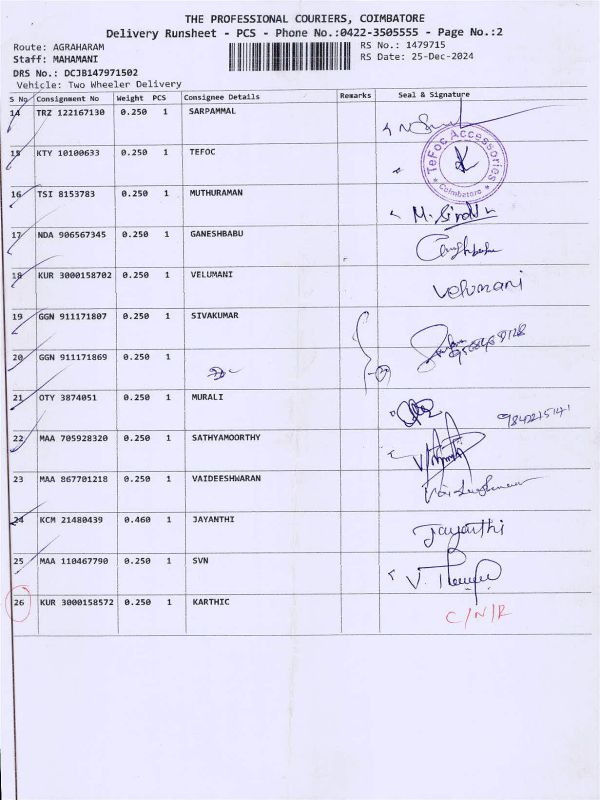 THE PROFESSIONAL COURIERS, COIMBATORE
Delivery Runsheet - PCS - Phone No.:0422-3505555 - Page No.:2
Route: AGRAHARAM RS No.: 1479715
Staff: MAHAMANI RS Date: 25-Dec-2024
DRS No.: DCJB147971502
Vehicle: Two Wheeler Delivery
S No Consignment No Weight PCS Consignee Details Remarks Seal & Signature
14 TRZ 122167130 0.250 1 SARPAMMAL
15 KTY 10100633 0.250 1 TEFOC TeFoc Accessories Coimbatore
16 TSI 8153783 0.250 1 MUTHURAMAN
17 NDA 906567345 0.250 1 GANESHBABU
18 KUR 3000158702 0.250 1 VELUMANI Velumani
19 GGN 911171807 0.250 1 SIVAKUMAR
20 GGN 911171869 0.250 1
21 OTY 3874051 0.250 1 MURALI
22 MAA 705928320 0.250 1 SATHYAMOORTHY
23 MAA 867701218 0.250 1 VAIDEESHWARAN
24 KCM 21480439 0.460 1 JAYANTHI Jayanthi
25 MAA 110467790 0.250 1 SVN
26 KUR 3000158572 0.250 1 KARTHIC C/N/R